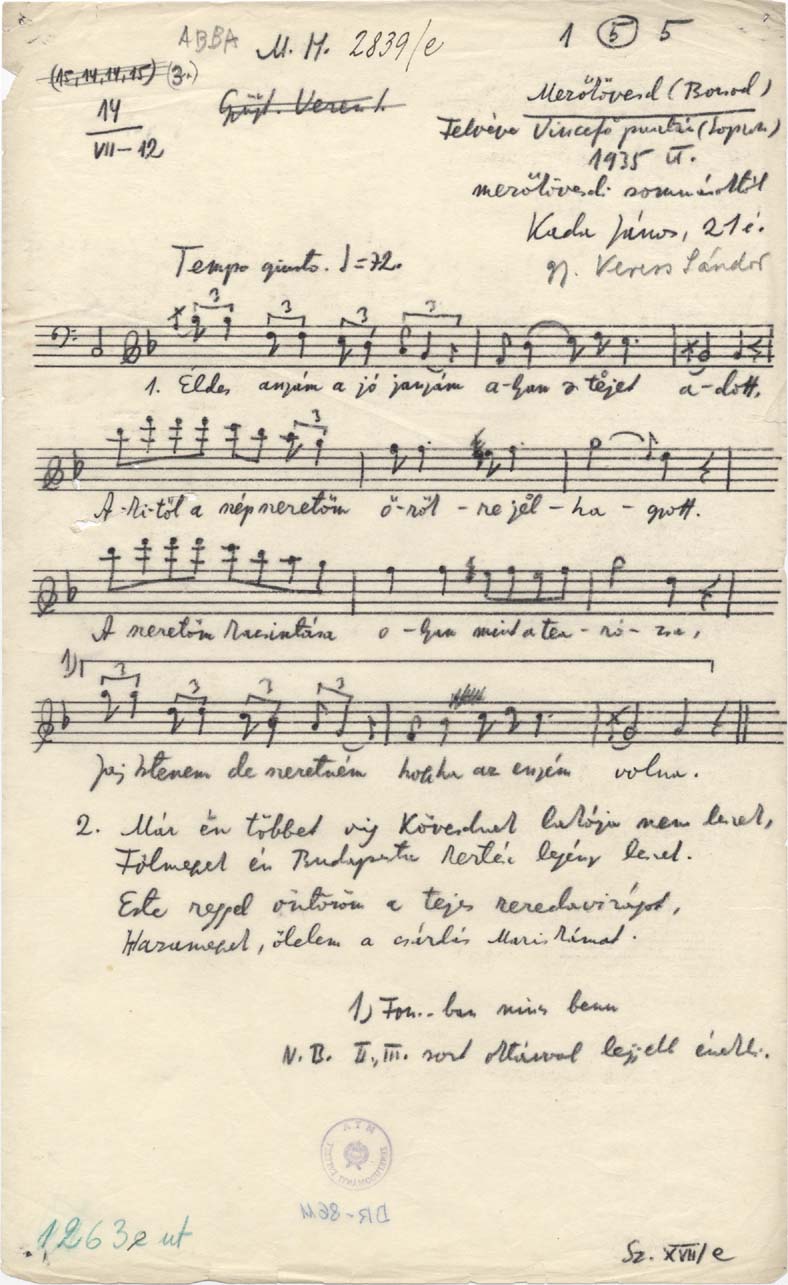 ABBA M. H. 2839/e 1 5 5
(15,14,14,15) (3.)
14
VII-12
Gyüjt. Veress
Mezőkövesd (Borsod)
Felvéve Vincefő puszta (Sopron)
1935 II.
mezőkövesdi
Kada János, 21 é.
gy. Veress Sándor
Tempo giusto. ♩=72.
3 3 3 3
1. Éldes anyám a jó anyám a-kan tejet a-dott,
3
A-ki-től a szép szeretőm ö-röl-re
A szeretőm kacsintása o-lyan mind a tea-ró-zsa,
1)
3 3 3 3
Jaj Istenem de szeretném hogyha az enyém volna.
2. Már én többet víg Kövesdnek lakója nem leszek,
Fölmegyek én Budapestre kertész legény leszek.
Este reggel öntözöm a tejes rezedavirágot,
Hazamegyek, ölelem a csárdás Mariskámat.
1) Fon.-ban nincs benn
N.B. II., III. sort oktávval lejjebb énekli.
DR-8611
1263e ut
Sz. XVII/e